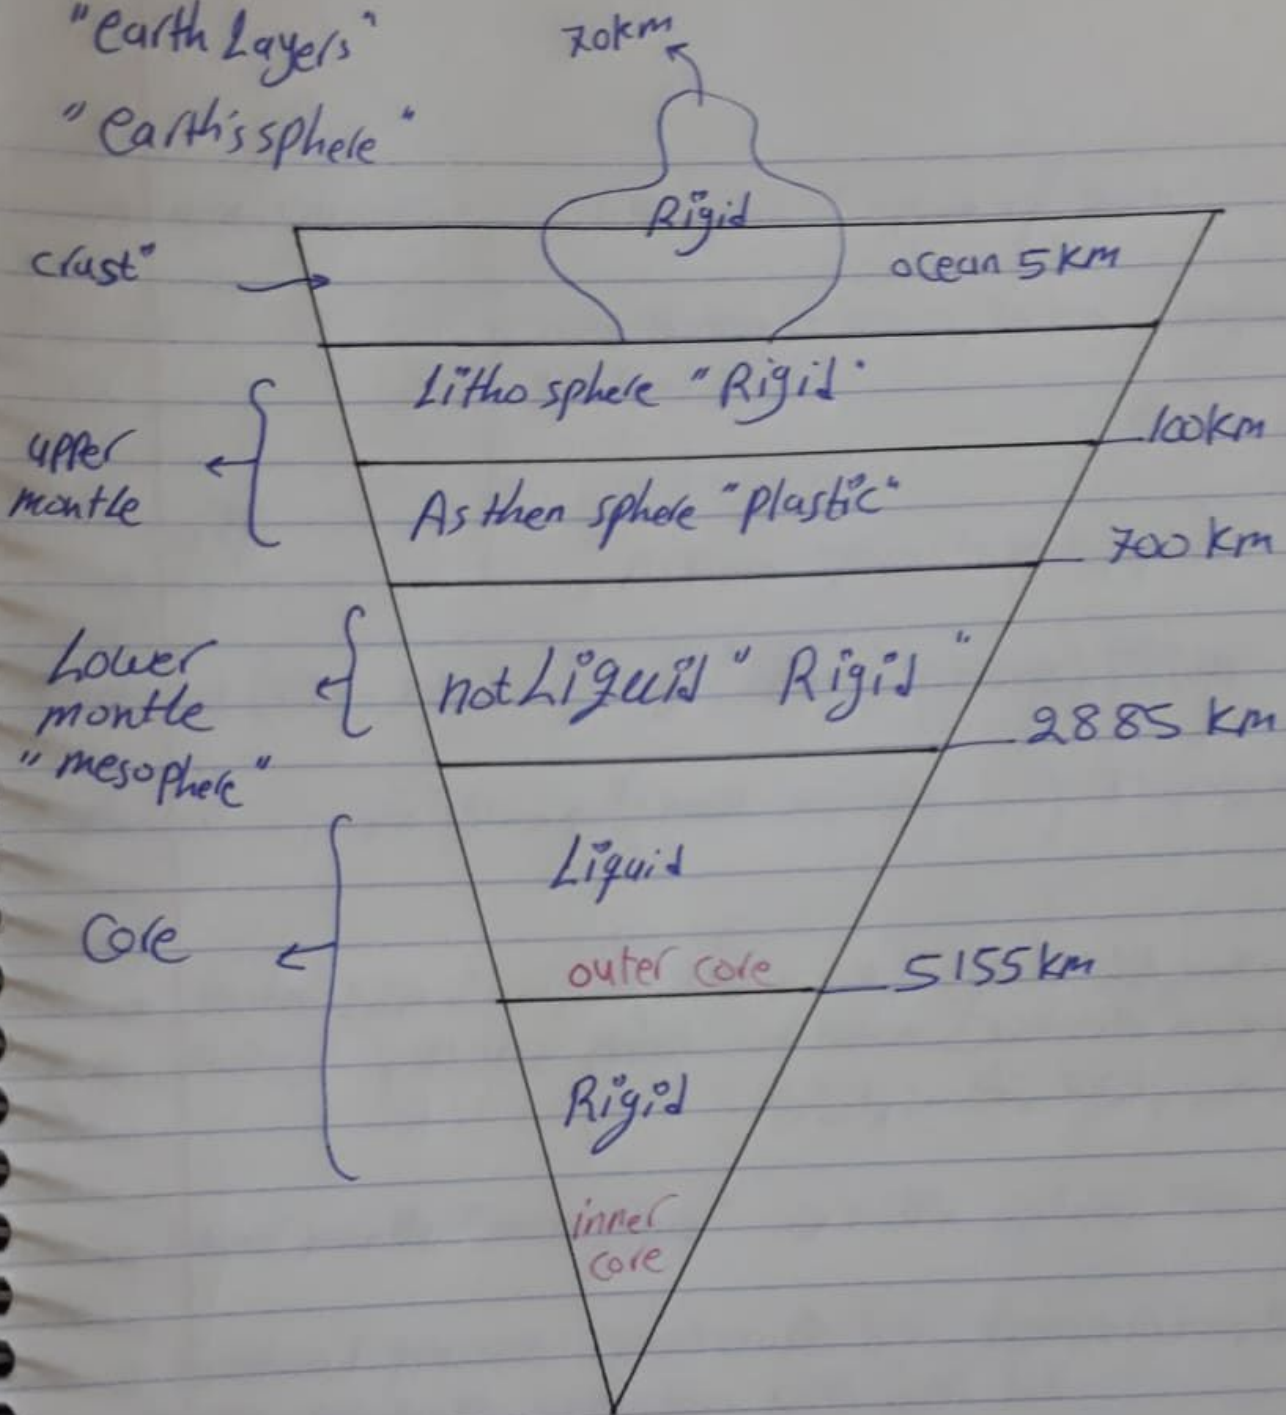 "earth Layers"
"earth'ssphere"
70km
Rigid
crust"
ocean 5 km
Lithosphere "Rigid"
100km
upper
montle
Asthen sphere "plastic"
700 km
Lower
montle
"mesophere"
not Liquid "Rigid"
2885 km
Liquid
Core
outer core
5155 km
Rigid
inner
core